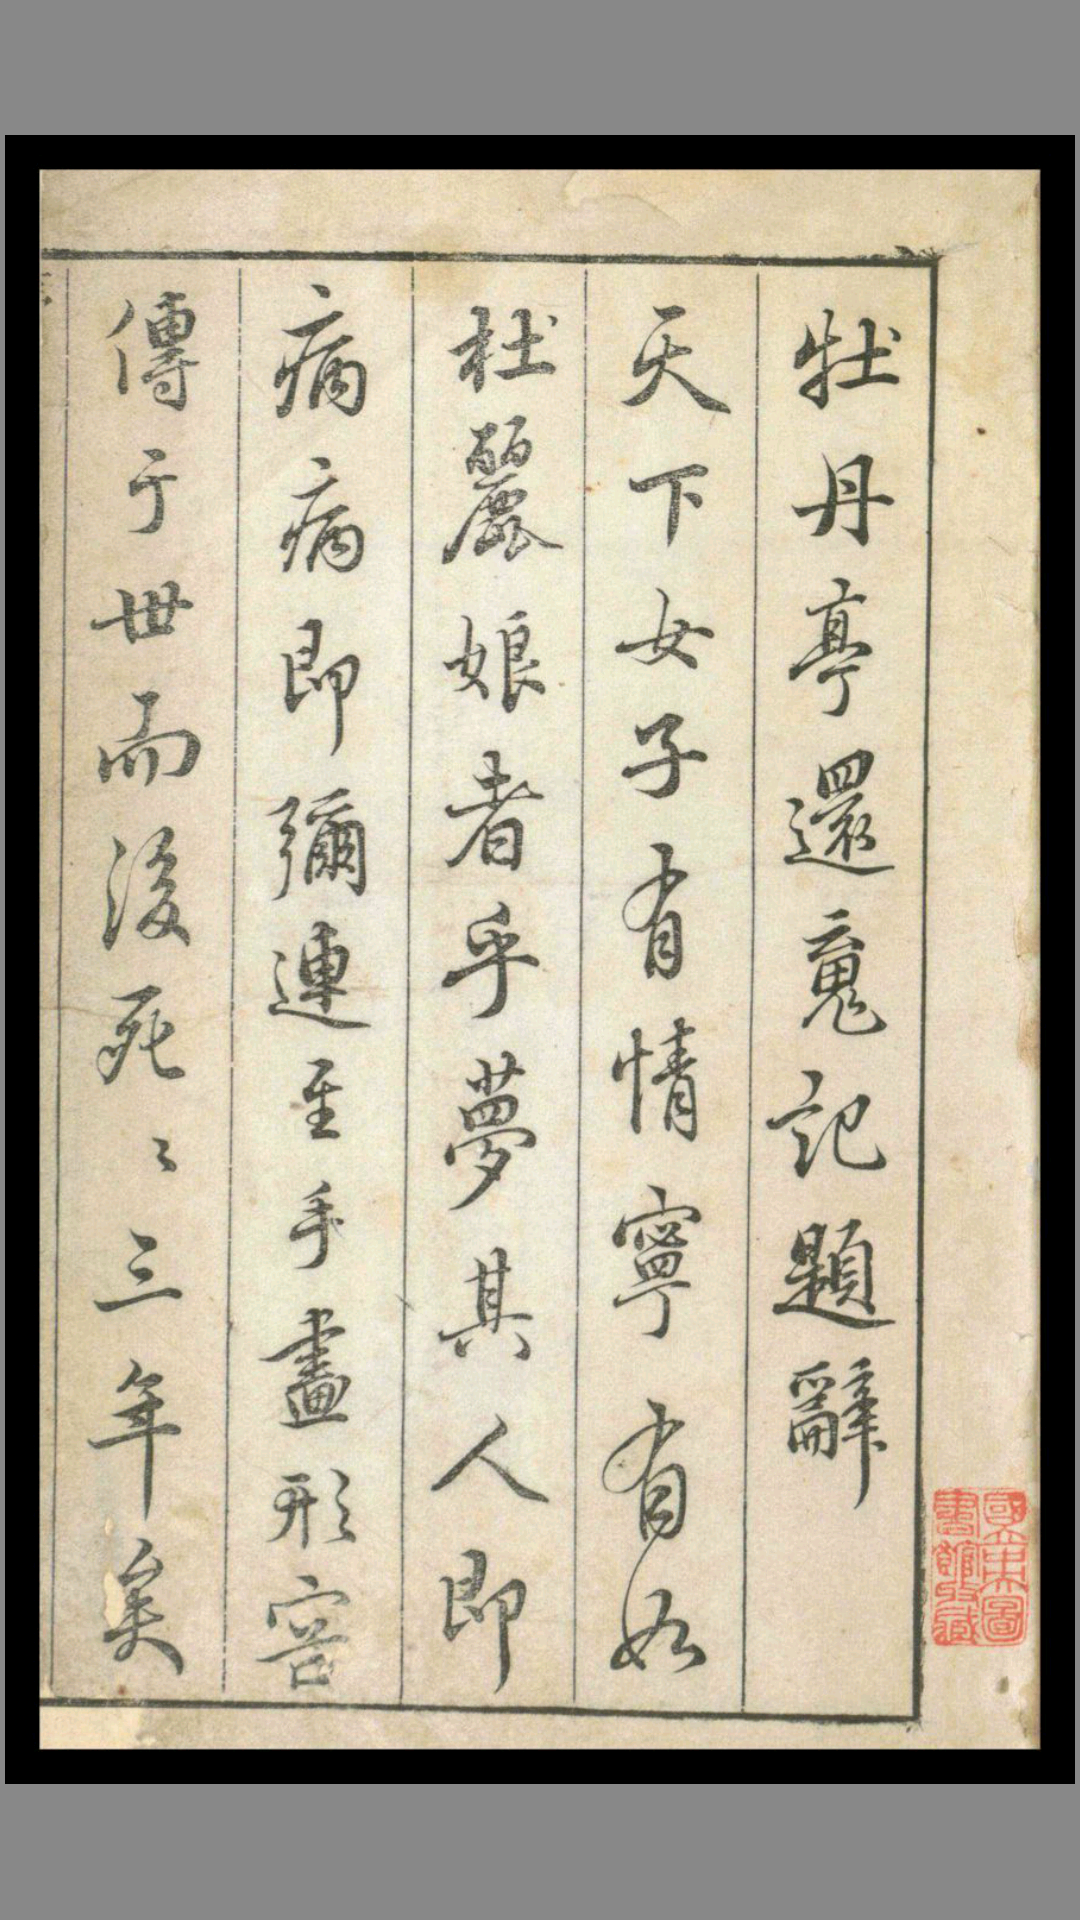 牡丹亭還魂記題辭
天下女子有情寧有如
杜麗娘者乎夢其人即
病病即彌連至手畫形容
傳于世而後死〻三年矣
國立中央圖
書館收藏